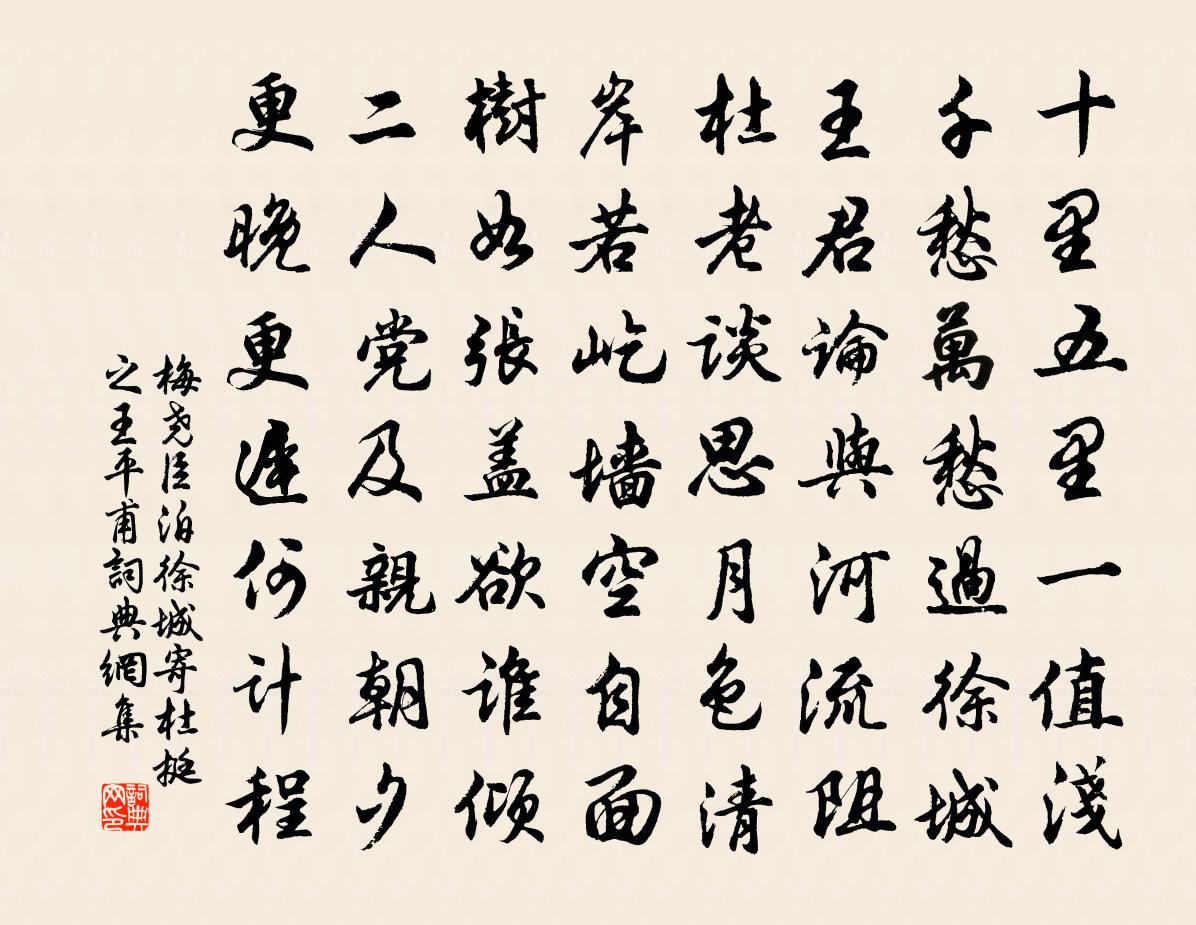 十里五里一值淺
千愁萬愁過徐城
王君論與河流阻
杜老談思月色清
岸若屹墙空自面
樹如張盖欲谁倾
二人党及親朝夕
更晚更遲何计程
梅尧臣泊徐城寄杜挺
之王平甫詞典網集
詞典
网印